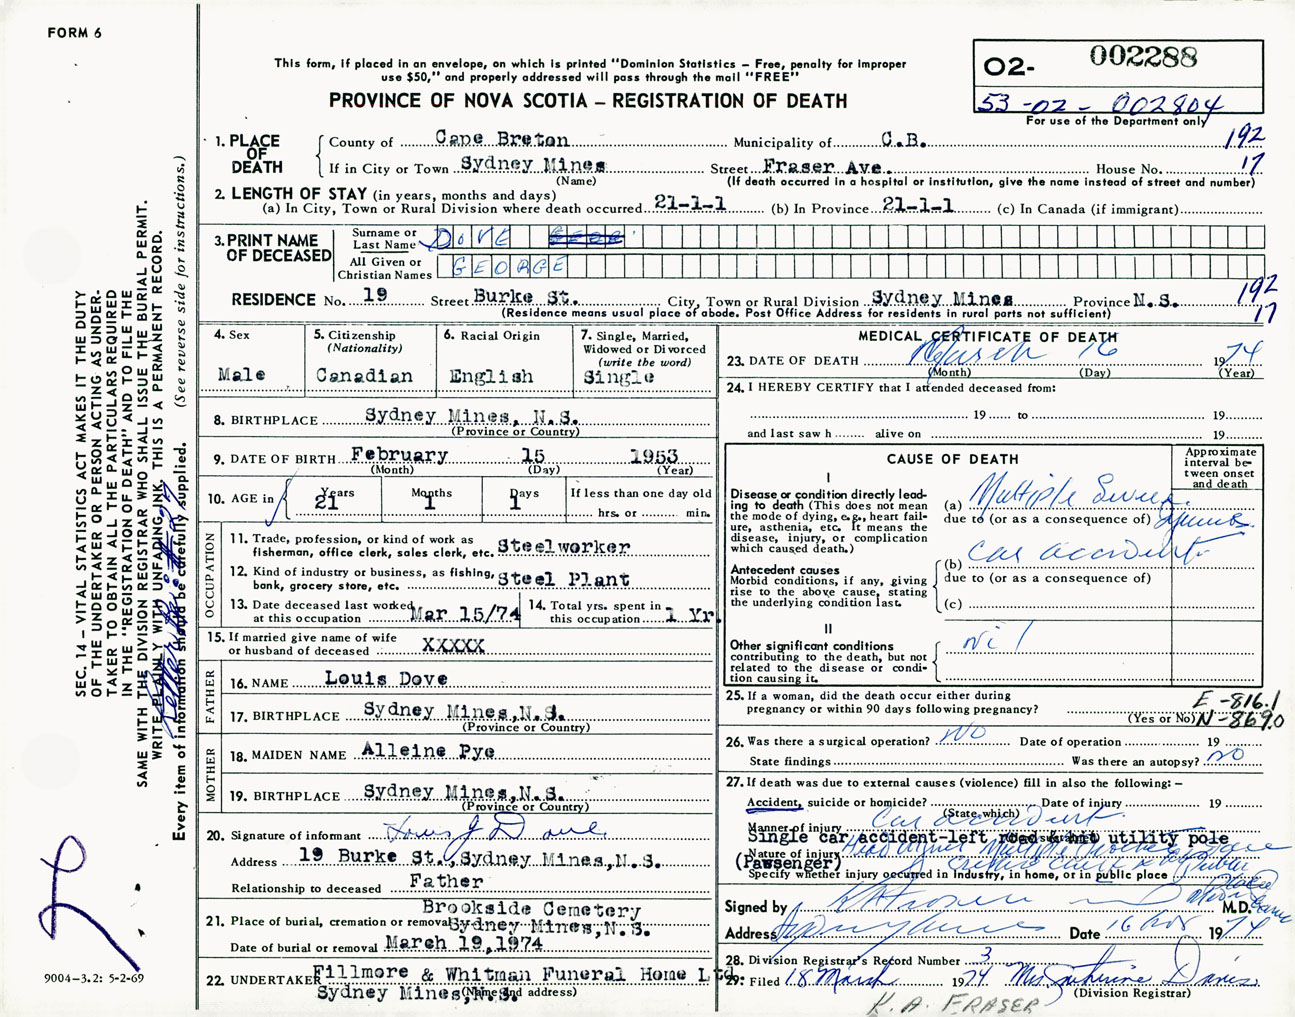 FORM 6
This form, if placed in an envelope, on which is printed "Dominion Statistics – Free, penalty for improper
use $50," and properly addressed will pass through the mail "FREE"
PROVINCE OF NOVA SCOTIA – REGISTRATION OF DEATH
O2- 002288
53-02-002804
For use of the Department only
SEC. 14 – VITAL STATISTICS ACT MAKES IT THE DUTY
OF THE UNDERTAKER OR PERSON ACTING AS UNDER-
TAKER TO OBTAIN ALL THE PARTICULARS REQUIRED
IN THE "REGISTRATION OF DEATH" AND TO FILE THE
SAME WITH THE DIVISION REGISTRAR WHO SHALL ISSUE THE BURIAL PERMIT.
WRITE PLAINLY WITH UNFADING INK. THIS IS A PERMANENT RECORD.
Every item of information should be carefully supplied. (See reverse side for instructions.)
1. PLACE OF DEATH
County of Cape Breton Municipality of C.B. 192
If in City or Town Sydney Mines Street Fraser Ave. House No. 17
(Name) (If death occurred in a hospital or institution, give the name instead of street and number)
2. LENGTH OF STAY (in years, months and days)
(a) In City, Town or Rural Division where death occurred 21-1-1 (b) In Province 21-1-1 (c) In Canada (if immigrant)
3. PRINT NAME OF DECEASED
Surname or Last Name DOVE
All Given or Christian Names GEORGE
RESIDENCE No. 19 Street Burke St. City, Town or Rural Division Sydney Mines Province N.S. 192
(Residence means usual place of abode. Post Office Address for residents in rural parts not sufficient) 17
4. Sex Male
5. Citizenship (Nationality) Canadian
6. Racial Origin English
7. Single, Married, Widowed or Divorced (write the word) Single
8. BIRTHPLACE Sydney Mines, N.S.
(Province or Country)
9. DATE OF BIRTH February 15 1953
(Month) (Day) (Year)
10. AGE in Years 21 Months 1 Days 1 If less than one day old
hrs. or min.
OCCUPATION
11. Trade, profession, or kind of work as fisherman, office clerk, sales clerk, etc. Steelworker
12. Kind of industry or business, as fishing, bank, grocery store, etc. Steel Plant
13. Date deceased last worked at this occupation Mar 15/74
14. Total yrs. spent in this occupation 1 Yr.
15. If married give name of wife or husband of deceased XXXXX
FATHER
16. NAME Louis Dove
17. BIRTHPLACE Sydney Mines,N.S.
(Province or Country)
MOTHER
18. MAIDEN NAME Alleine Pye
19. BIRTHPLACE Sydney Mines,N.S.
(Province or Country)
20. Signature of informant Louis J Dove
Address 19 Burke St.,Sydney Mines,N.S.
Relationship to deceased Father
21. Place of burial, cremation or removal Brookside Cemetery
Sydney Mines,N.S.
Date of burial or removal March 19,1974
22. UNDERTAKER Fillmore & Whitman Funeral Home Ltd.
Sydney Mines,N.S. (Name and address)
MEDICAL CERTIFICATE OF DEATH
23. DATE OF DEATH March 16 1974
(Month) (Day) (Year)
24. I HEREBY CERTIFY that I attended deceased from:
19 to 19
and last saw h alive on 19
CAUSE OF DEATH
Approximate interval between onset and death
I
Disease or condition directly leading to death (This does not mean the mode of dying, e.g., heart failure, asthenia, etc. It means the disease, injury, or complication which caused death.)
(a) Multiple Severe Injuries
due to (or as a consequence of)
Antecedent causes
Morbid conditions, if any, giving rise to the above cause, stating the underlying condition last.
(b) Car accident
due to (or as a consequence of)
(c)
II
Other significant conditions
contributing to the death, but not related to the disease or condition causing it.
nil
25. If a woman, did the death occur either during
pregnancy or within 90 days following pregnancy?
(Yes or No)
E-816.1
N-869.0
26. Was there a surgical operation? NO Date of operation 19
State findings Was there an autopsy? NO
27. If death was due to external causes (violence) fill in also the following: –
Accident, suicide or homicide? Date of injury 19
(State which)
Manner of injury Car accident
Single car accident-left road & hit utility pole
Nature of injury
(Passenger)
Specify whether injury occurred in industry, in home, or in public place
Signed by M.D.
Address Sydney Mines Date 16 1974
28. Division Registrar's Record Number 3
29. Filed 18 March 1974 Mrs. Catherine Davis
(Division Registrar)
K. A. FRASER
9004-3.2: 5-2-69